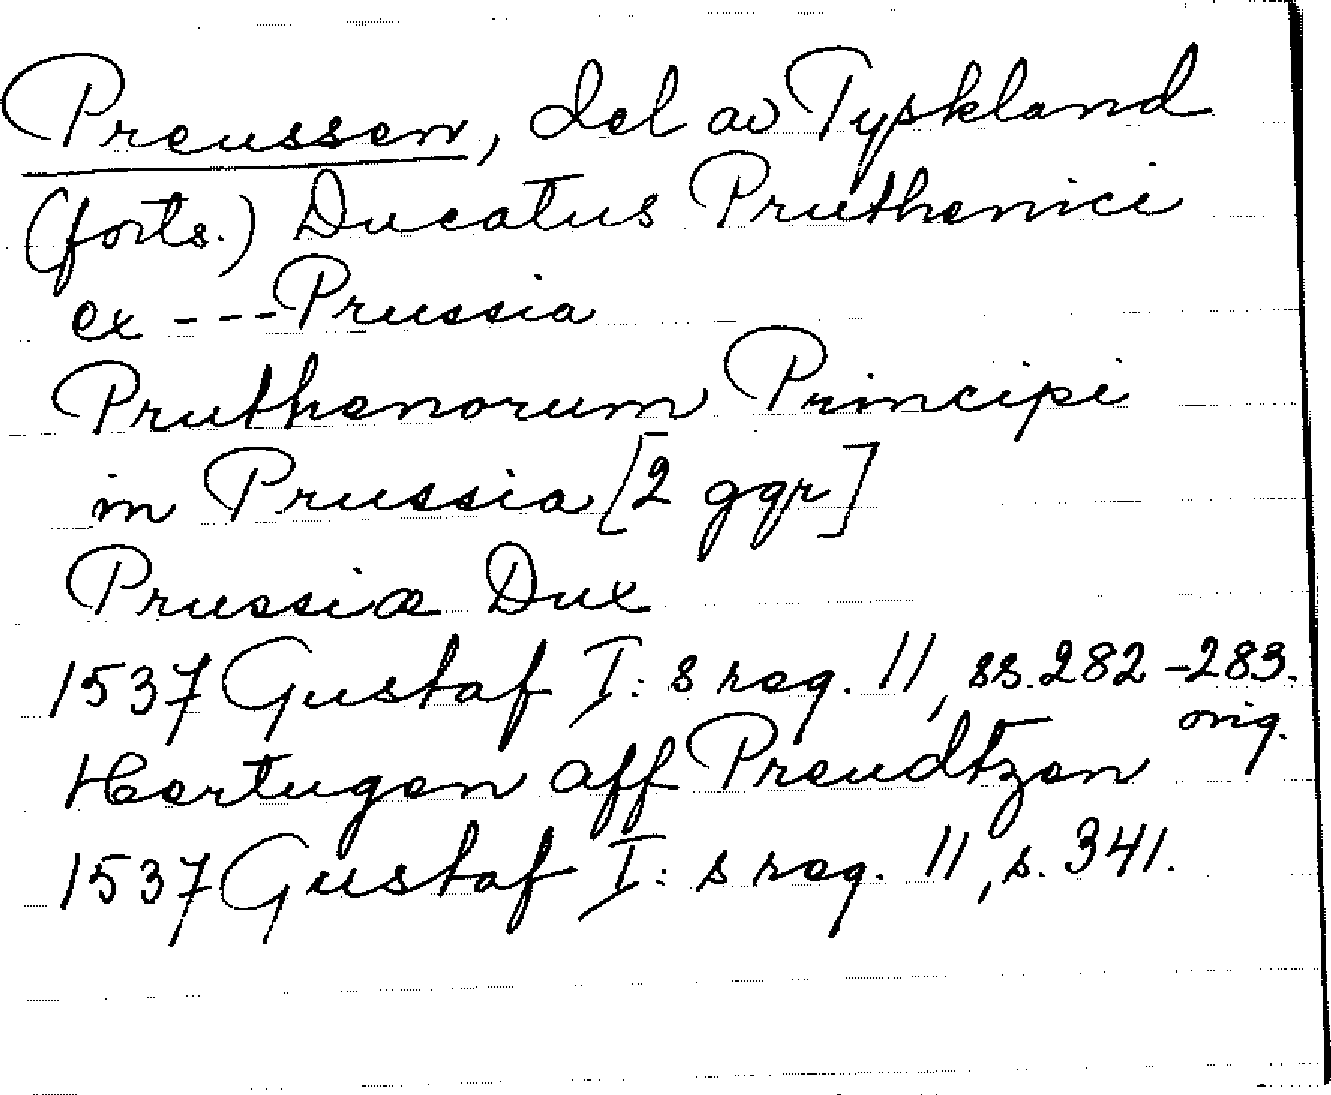 Preussen, del av Tyskland
(forts.) Ducatus Pruthenici
ex --- Prussia
Pruthenorum Principi
in Prussia [2 ggr]
Prussiæ Dux
1537 Gustaf I:s reg. 11, ss. 282-283.
orig.
Hertugen aff Preudtzen
1537 Gustaf I:s reg. 11, s. 341.